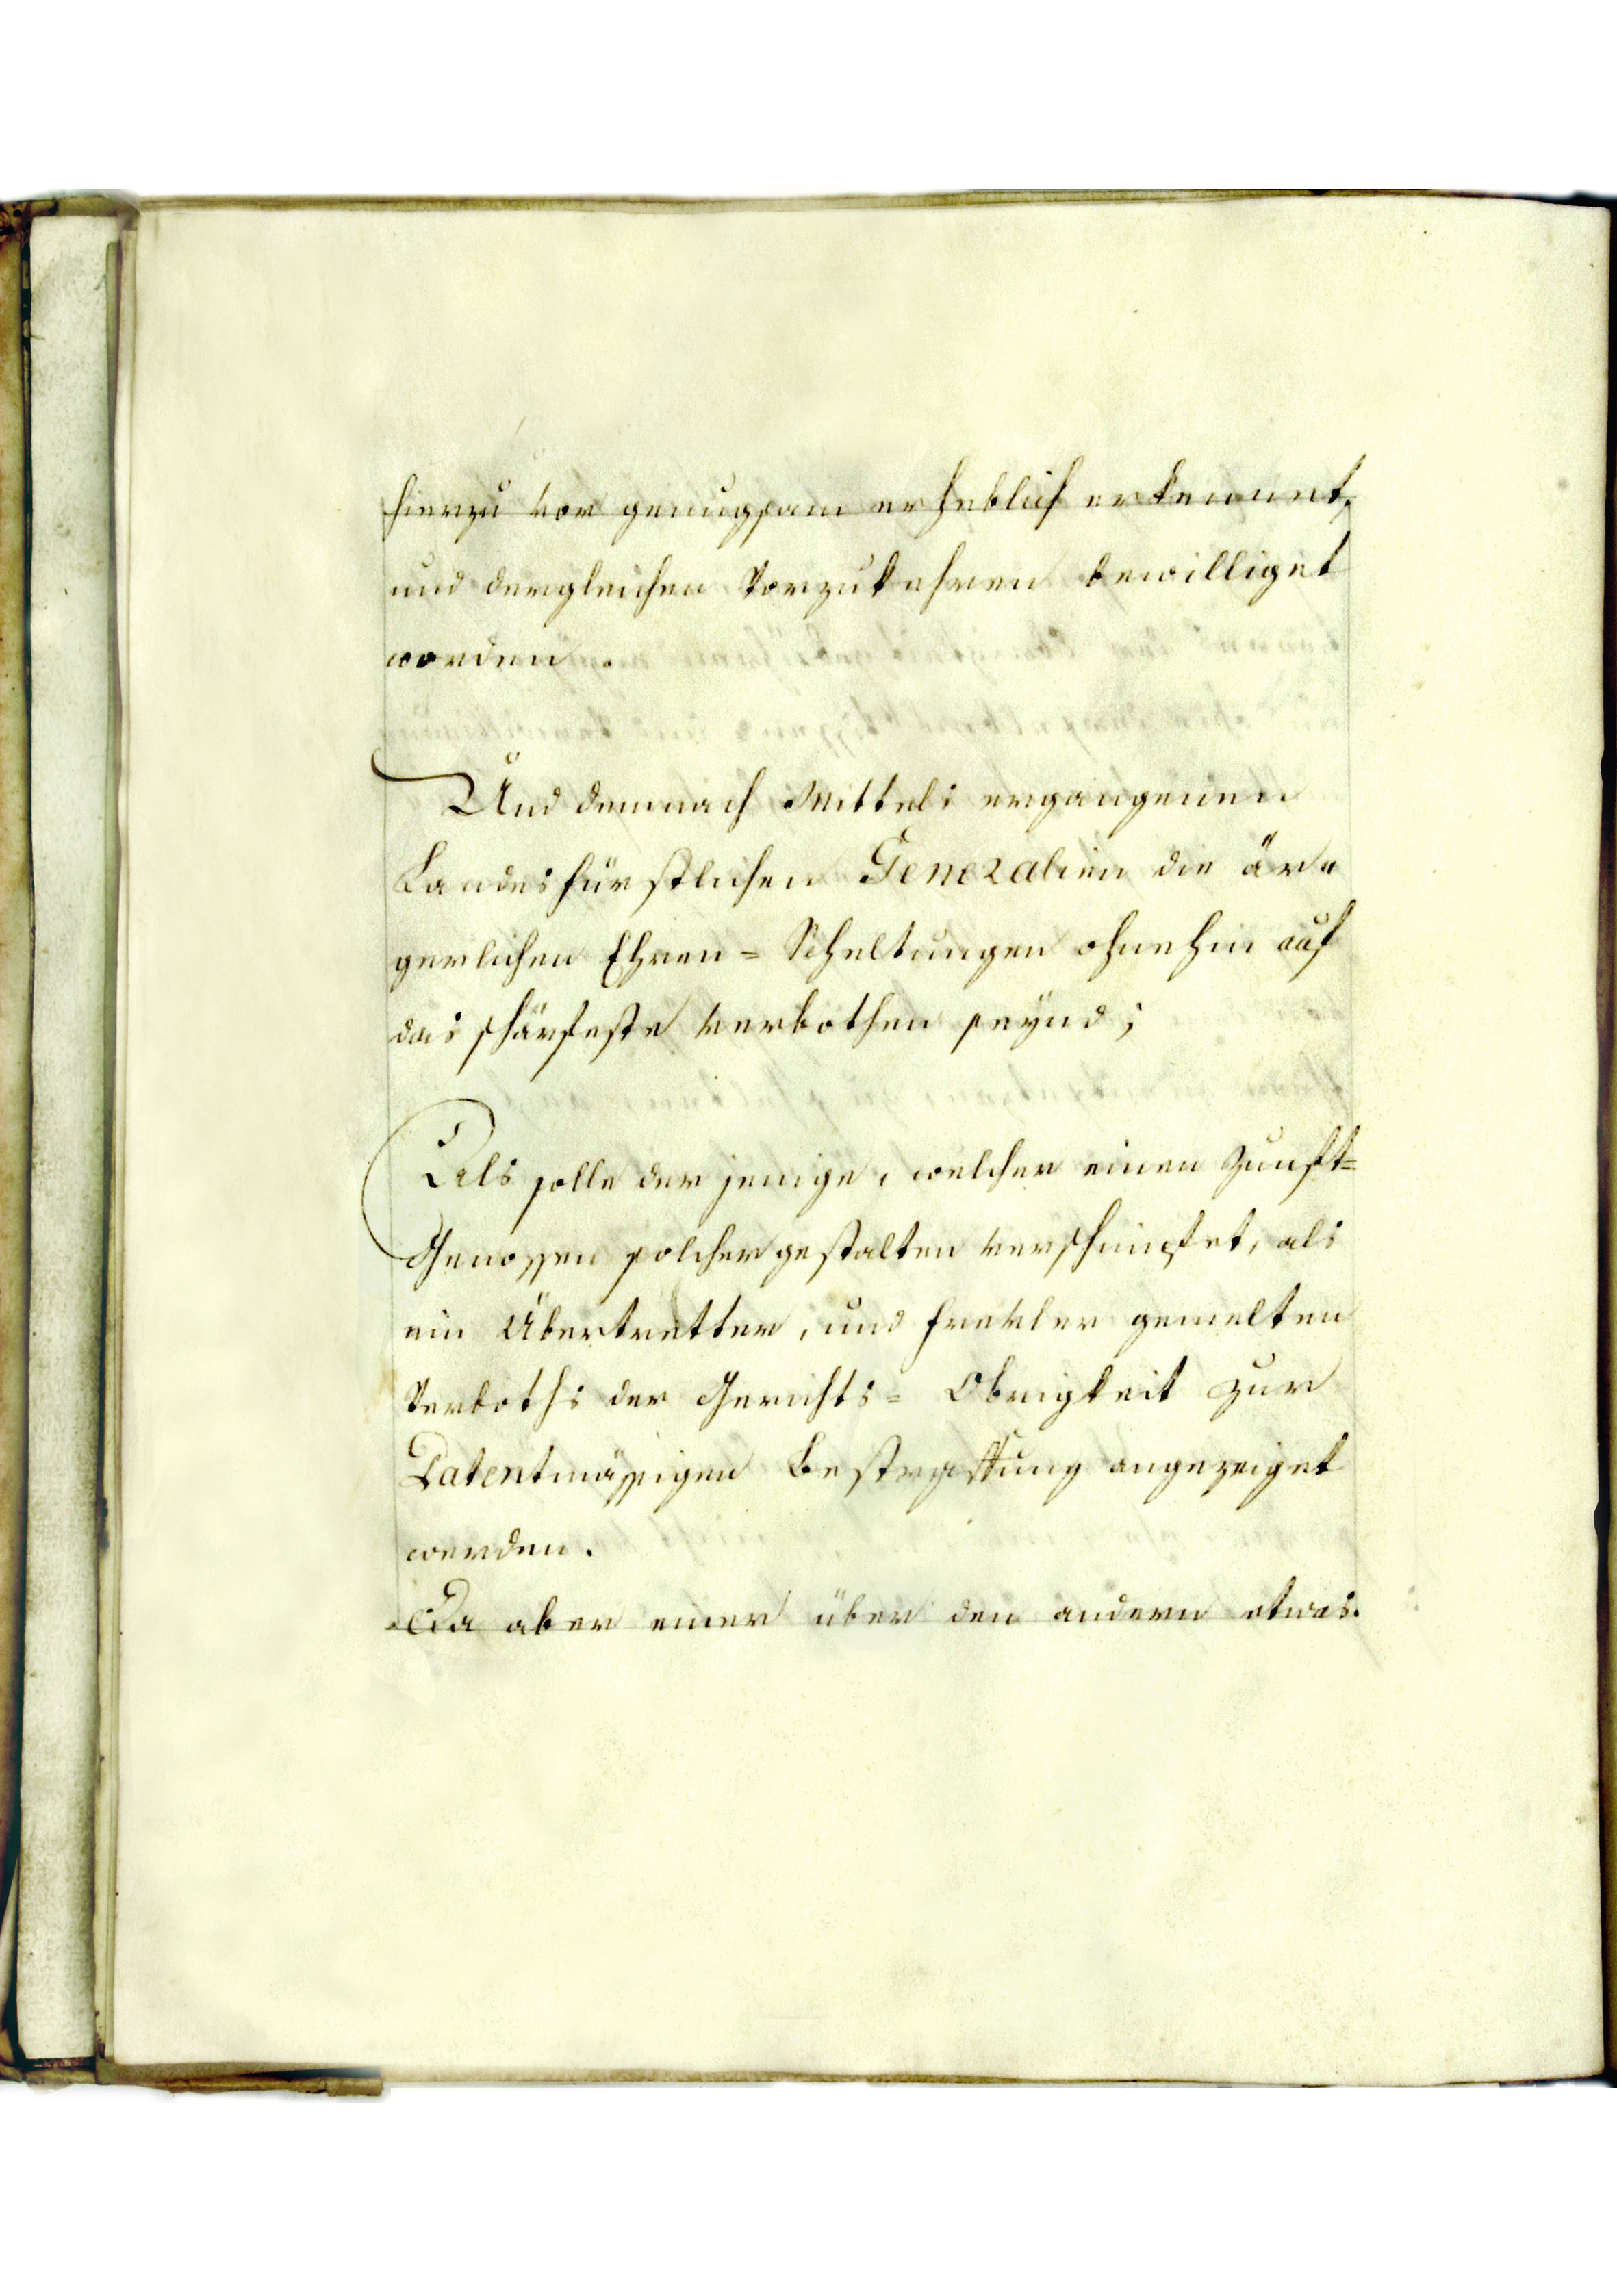 hierzu vor genugsam erheblich erkennet,
und dergleichen Vorzukehren bewilliget
worden.
Und demnach Mittels ergangenen
Landesfürstlichen Generalien die är=
gerlichen Ehren= Scheltungen ohnehin auf
das schärfeste verbothen seynd;
Als solle der jenige, welcher einen Zunft=
Genossen solchergestalten verschimpfet, als
ein Übertretter, und Frevler gemelten
Verboths der Gerichts= Obrigkeit zur
Patentmässigen Bestraffung angezeiget
werden.
Da aber einer über den andern etwas.